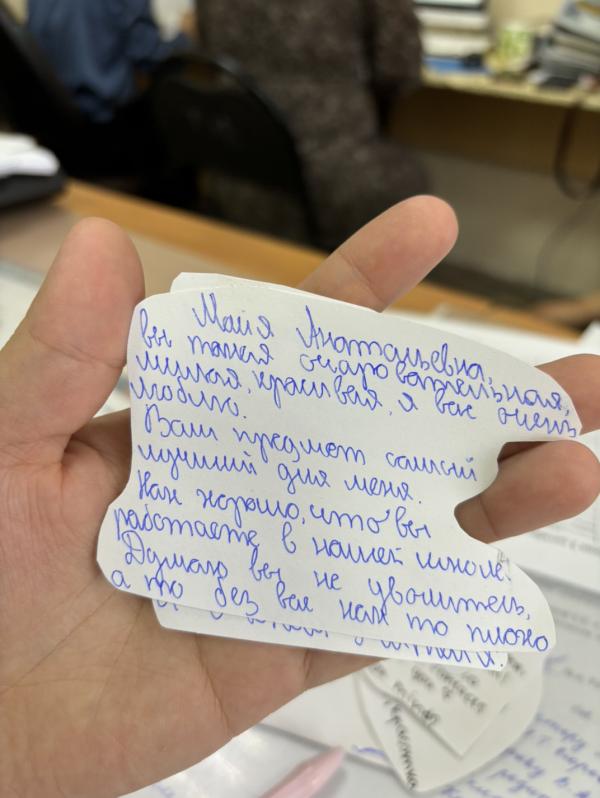 Майя Анатальевна,
вы такая очаровательная,
милая, красивая, я вас очень
люблю.
Ваш предмет самый
лучший для меня.
Как хорошо, что вы
работаете в нашей школе.
Думаю вы не уволитесь,
а то без вас как то плохо